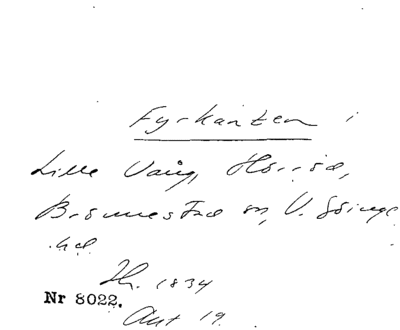 Fyrkanten i
Lille Vång, Hörröd,
Brönnestad sn, V. Göinge
hd
1834
Nr 8022.
Ant 19